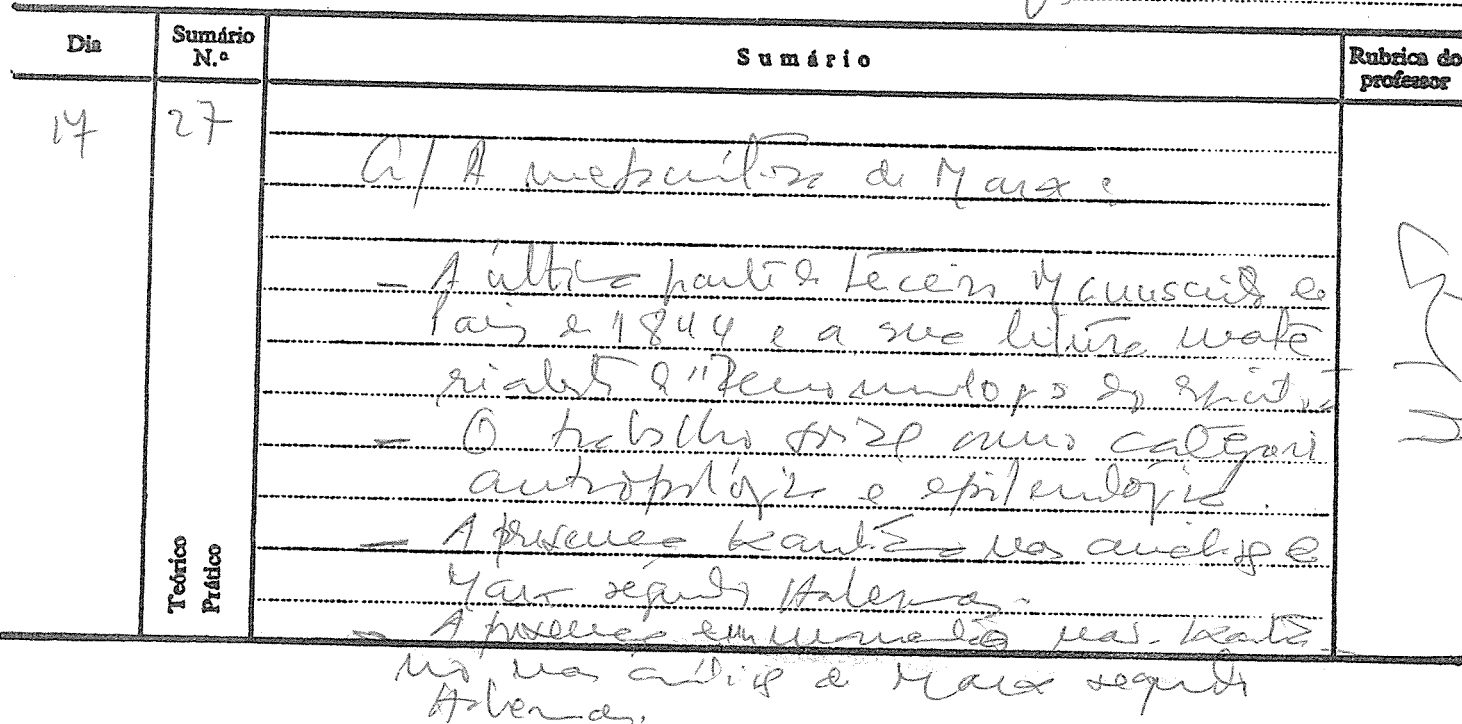 Dia
Sumário N.º
Sumário
Rubrica do professor
17
27
a/ A metacrítica de Marx :
- A última parte do terceiro Manuscrito de
Paris de 1844 e a sua leitura mate
rialista da "Fenomenologia do Espírito"
- O trabalho social como categoria
antropológica e epistemológica.
- A presença kantiana nas análises de
Marx segundo Habermas.
- A presença kantia
no nas análises de Marx segundo
Habermas.
Teórico
Prático